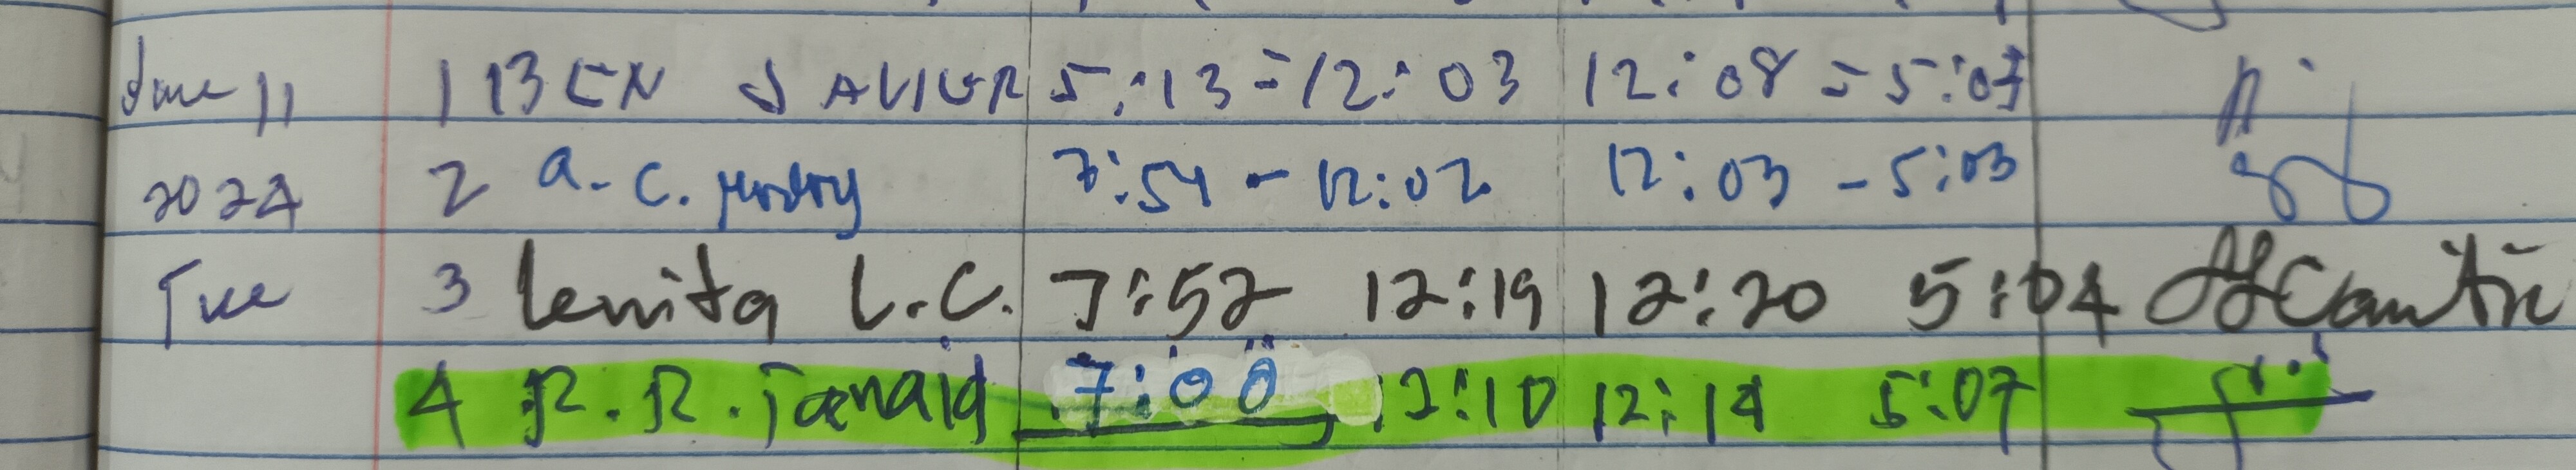 June 11 1 BEN JAVIER 5:13 = 12:03 12:08 = 5:07
2024 2 a. c. 7:54 - 12:02 12:03 - 5:03
Tue 3 lenita L.C. 7:52 12:19 12:20 5:04
4 R. R. 7:00 12:10 12:14 5:07